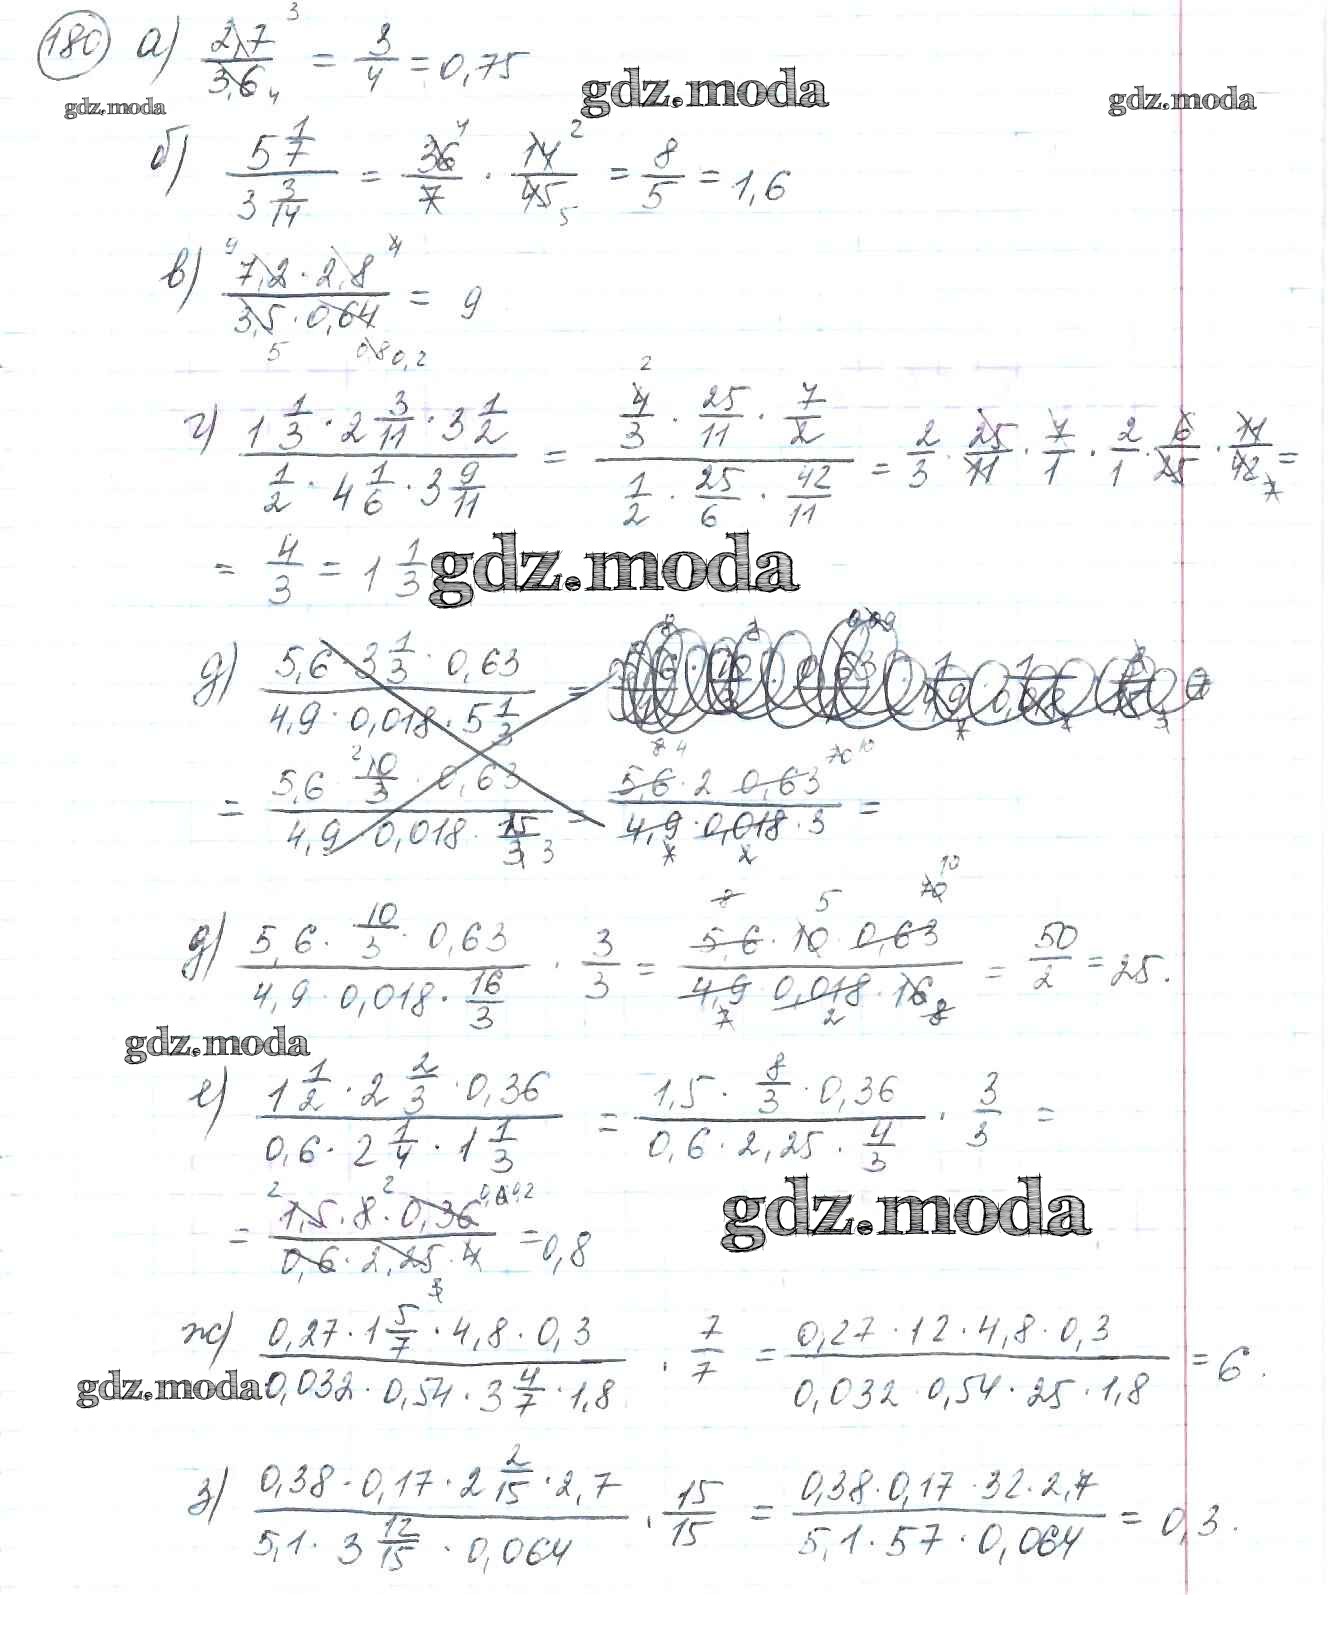 180 а) 2,7/3,6 = 3/4 = 0,75
gdz.moda gdz.moda gdz.moda
б) 5 1/7 / 3 3/14 = 36/7 · 14/45 = 8/5 = 1,6
в) 7,2 · 2,8 / 3,5 · 0,64 = 9
г) 1 1/3 · 2 3/11 · 3 1/2 / 1/2 · 4 1/6 · 3 9/11 = 4/3 · 25/11 · 7/2 / 1/2 · 25/6 · 42/11 = 2/3 · 25/11 · 7/1 · 2/1 · 6/25 · 11/42 =
= 4/3 = 1 1/3
gdz.moda
д) 5,6 · 3 1/3 · 0,63 / 4,9 · 0,018 · 5 1/3 =
= 5,6 10/3 · 0,63 / 4,9 0,018 · 15/3 = 5,6 · 2 0,63 / 4,9 · 0,018 · 3 =
д) 5,6 · 10/3 · 0,63 / 4,9 · 0,018 · 16/3 · 3/3 = 5,6 · 10 · 0,63 / 4,9 · 0,018 · 16 = 50/2 = 25.
gdz.moda
е) 1 1/2 · 2 2/3 · 0,36 / 0,6 · 2 1/4 · 1 1/3 = 1,5 · 8/3 · 0,36 / 0,6 · 2,25 · 4/3 · 3/3 =
= 1,5 · 8 · 0,36 / 0,6 · 2,25 · 4 = 0,8
gdz.moda
ж) 0,27 · 1 5/7 · 4,8 · 0,3 / 0,032 · 0,54 · 3 4/7 · 1,8 · 7/7 = 0,27 · 12 · 4,8 · 0,3 / 0,032 · 0,54 · 25 · 1,8 = 6.
gdz.moda
з) 0,38 · 0,17 · 2 2/15 · 2,7 / 5,1 · 3 12/15 · 0,064 · 15/15 = 0,38 · 0,17 · 32 · 2,7 / 5,1 · 57 · 0,064 = 0,3.